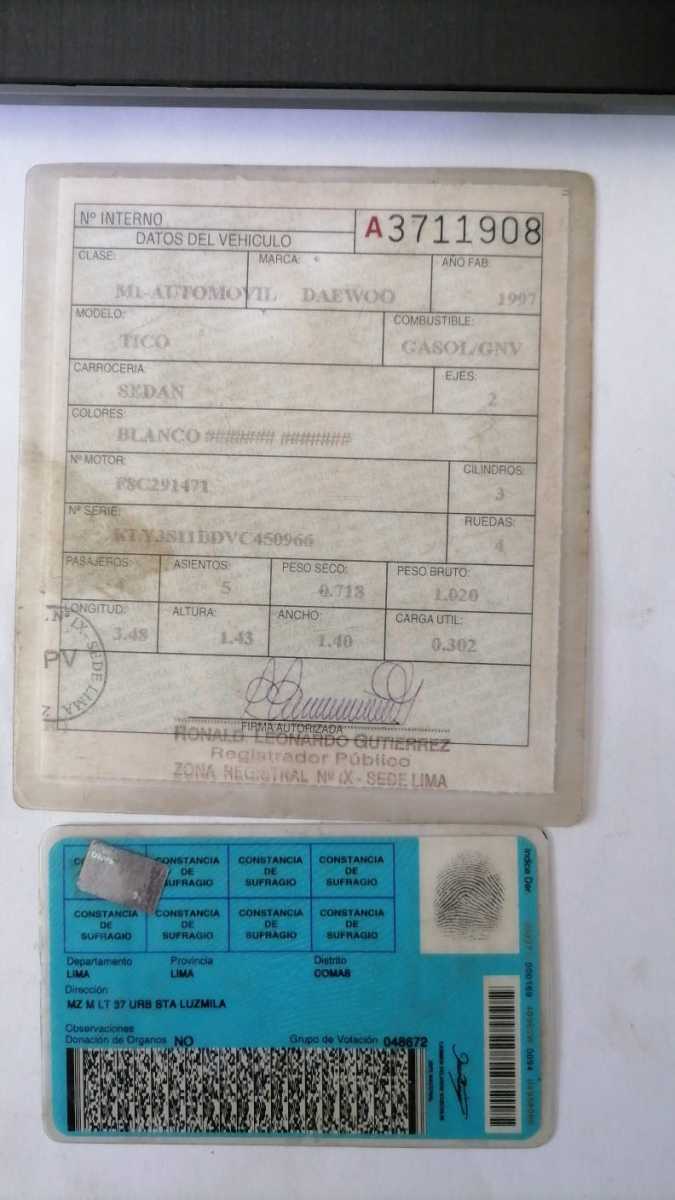 Nº INTERNO
A3711908
DATOS DEL VEHICULO
CLASE: MARCA: AÑO FAB:
M1-AUTOMOVIL DAEWOO 1997
MODELO: COMBUSTIBLE:
TICO GASOL/GNV
CARROCERIA EJES:
SEDAN 2
COLORES
BLANCO ####### #######
Nº MOTOR: CILINDROS:
F8C291471 3
Nº SERIE: RUEDAS:
KLY3S11BDVC450966 4
PASAJEROS: ASIENTOS: PESO SECO: PESO BRUTO:
5 0.718 1.020
LONGITUD: ALTURA: ANCHO: CARGA UTIL:
3.48 1.43 1.40 0.302
IX - SEDE LIMA
PV
FIRMA AUTORIZADA
RONALD LEONARDO GUTIERREZ
Registrador Público
ZONA REGISTRAL Nº IX - SEDE LIMA
CONSTANCIA CONSTANCIA CONSTANCIA
DE DE DE
SUFRAGIO SUFRAGIO SUFRAGIO
CONSTANCIA CONSTANCIA CONSTANCIA CONSTANCIA
DE DE DE DE
SUFRAGIO SUFRAGIO SUFRAGIO SUFRAGIO
Indice Der.
Departamento Provincia Distrito
LIMA LIMA COMAS
Dirección
MZ M LT 37 URB STA LUZMILA
Observaciones
Donación de Organos NO Grupo de Votación 048672